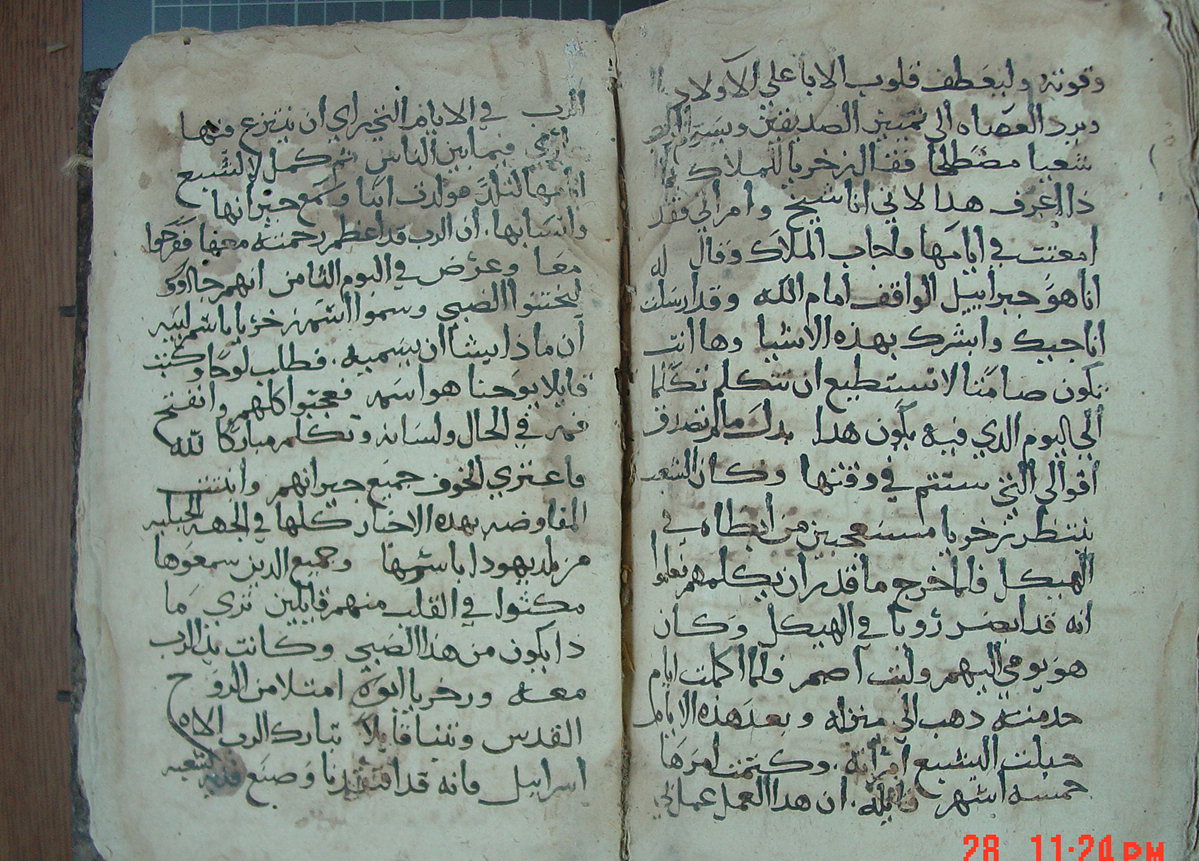 وقوته وليعطف قلوب الابا علي الاولاد
ويرد العصاه الي تمييز الصديقين ويسير
شعبا مصطلحا فقال زخريا للملاك
ذا اعرف هدا لاني انا شيخ وامراتي فقد
امعنت في ايامها واجاب الملاك وقال له
انا هو جبراييل الواقف امام الله وقد ارسلت
اناجيك وابشرك بهذه الاشيا وها انت
تكون صامتا لا تستطيع ان تتكلم تكلما
الي اليوم الدي فيه يكون هدا بدل ما لم تصدق
اقوالي التي ستتم في وقتها وكان الشعب
ينتظر زخريا مستعجبين من ابطاه في
الهيكل فلما خرج ما قدر ان يكلمهم فعلموا
انه قد ابصر رؤيا في الهيكل وكان
هو يومي اليهم ولبث اصم فلما كملت ايام
خدمته دهب الي منزله وبعد هذه الايام
حبلت اليشبع امراته وكتمت امرها
خمسة اشهر قايله ان هدا العمل عمل لي
الرب في الايام التي راي ان ينتزع فيها
فيما بين الناس ثم كمل لاليشبع
ايامها لتلد فولدت ابنا وسمع جيرانها
وانسابها ان الرب قد اعظم رحمته معها ففرحوا
معا وعرض في اليوم الثامن انهم جااوو
ليختنوا الصبي وسموا اسمه زخريا باسم ابيه
ان ماذا يشا ان يسميه فطلب لوحا وكتب
قايلا يوحنا هو اسمه فعجبوا كلهم وانفتح
فمه في الحال ولسانه وتكلم مباركا لله
فاعتري الخوف جميع جيرانهم وانتشت
المفاوضه بهده الاخبار كلها في الجهه الجبليه
من بلد يهودا باسرها وجميع الدين سمعوها
مكثوا في القلب منهم قايلين تري ما
دا يكون من هذا الصبي وكانت يد الرب
معه وزخريا ابوه امتلا من الروح
القدس وتنبا قايلا تبارك الرب الاه
اسراييل فانه قد افتقدنا وصنع فديه لشعبه
28 11:24 PM